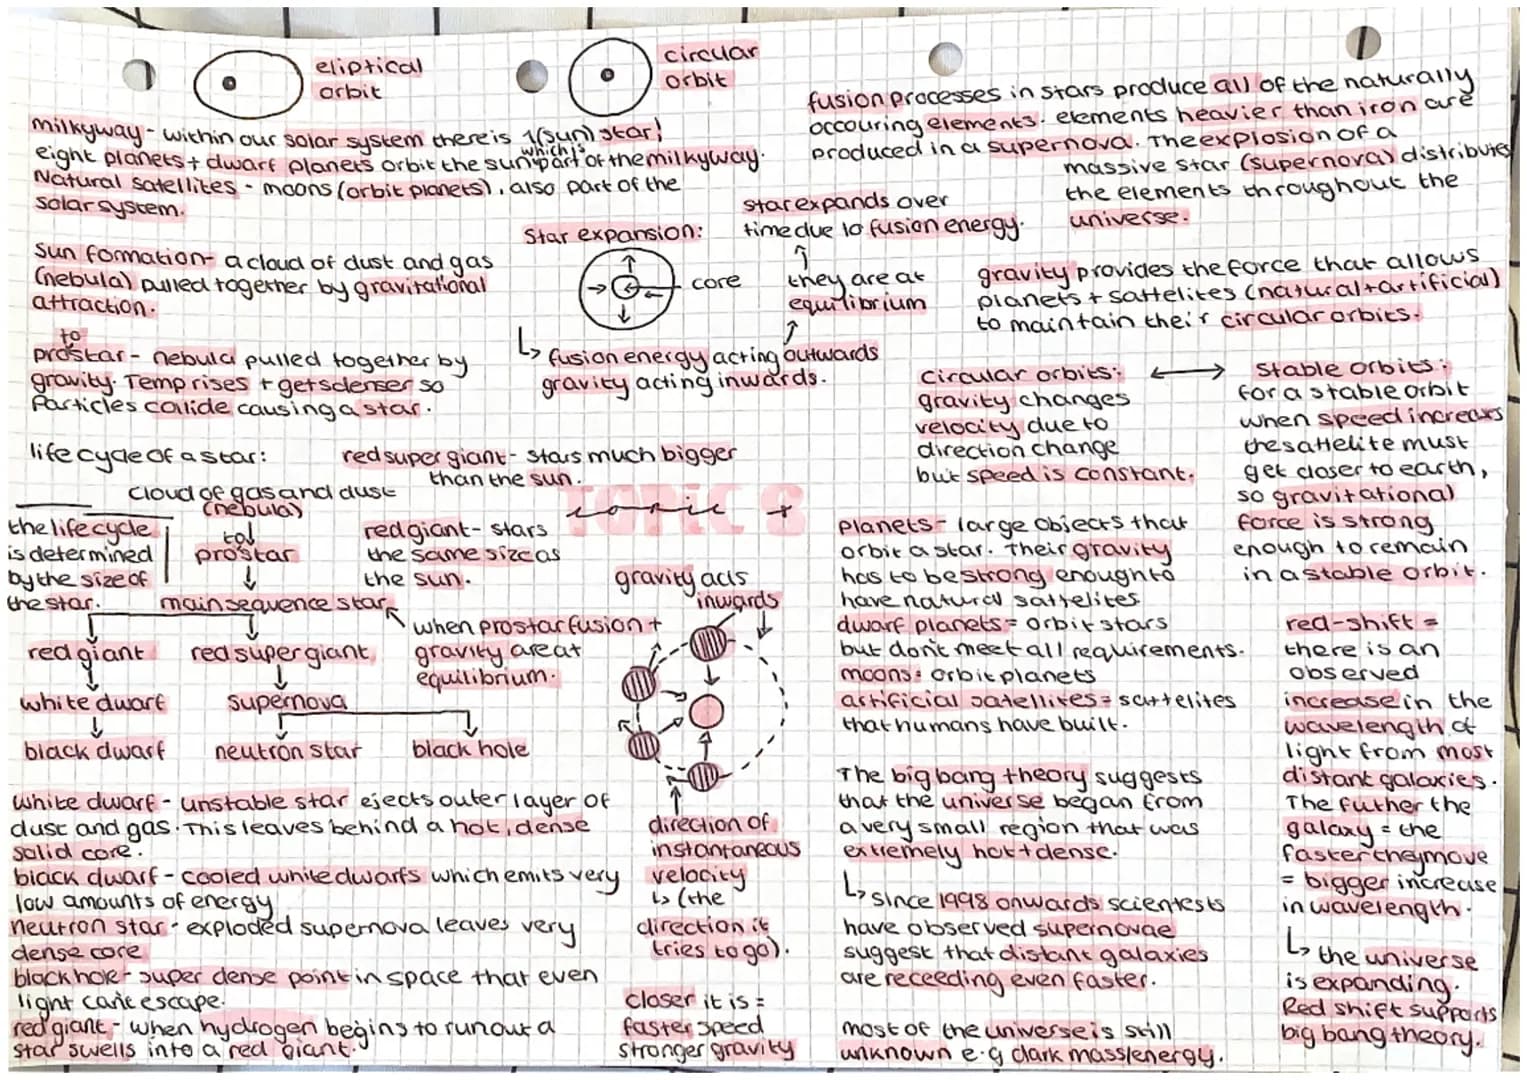 eliptical
orbit
circular
orbit
milkyway - within our solar system there is 1(sun) star!
eight planets + dwarf planets orbit the sun which is part of the milkyway.
Natural satellites - moons (orbit planets), also part of the
solar system.
Sun formation - a cloud of dust and gas
(nebula) pulled together by gravitational
attraction.
to
prostar - nebula pulled together by
gravity. Temp rises + gets denser so
Particles collide causing a star.
Star expansion:
core
star expands over
time due to fusion energy.
they are at
equilibrium
↳ fusion energy acting outwards
gravity acting inwards.
fusion processes in stars produce all of the naturally
occouring elements. elements heavier than iron are
produced in a supernova. The explosion of a
massive star (supernova) distributes
the elements throughout the
universe.
gravity provides the force that allows
planets + sattelites (natural + artificial)
to maintain their circular orbits.
circular orbits:
gravity changes
velocity due to
direction change
but speed is constant.
Stable orbits:
for a stable orbit
when speed increases
the sattelite must
get closer to earth,
so gravitational
force is strong
enough to remain
in a stable orbit.
life cycle of a star:
red super giant - stars much bigger
than the sun.
TOPIC 8
cloud of gas and dust
(nebula)
the life cycle
is determined
by the size of
the star.
to
prostar
main sequence star
red giant
red super giant
white dwarf
supernova
black dwarf
neutron star
black hole
red giant - stars
the same size as
the sun.
when prostar fusion +
gravity are at
equilibrium.
gravity acts
inwards
direction of
instantaneous
velocity
↳ (the
direction it
tries to go).
closer it is =
faster speed
stronger gravity
white dwarf - unstable star ejects outer layer of
dust and gas. This leaves behind a hot, dense
solid core.
black dwarf - cooled white dwarfs which emits very
low amounts of energy
neutron star - exploded supernova leaves very
dense core
black hole - super dense point in space that even
light can't escape.
red giant - when hydrogen begins to run out a
star swells into a red giant.
planets - large objects that
orbit a star. Their gravity
has to be strong enough to
have natural sattelites
dwarf planets = orbit stars
but don't meet all requirements.
moons = orbit planets
artificial satellites = sattelites
that humans have built.
The big bang theory suggests
that the universe began from
a very small region that was
extremely hot + dense.
↳ since 1998 onwards scientests
have observed supernovae
suggest that distant galaxies
are receeding even faster.
most of the universe is still
unknown e.g dark mass/energy.
red-shift =
there is an
observed
increase in the
wavelength of
light from most
distant galaxies.
The futher the
galaxy = the
faster they move
= bigger increase
in wavelength.
↳ the universe
is expanding.
Red shift supports
big bang theory.